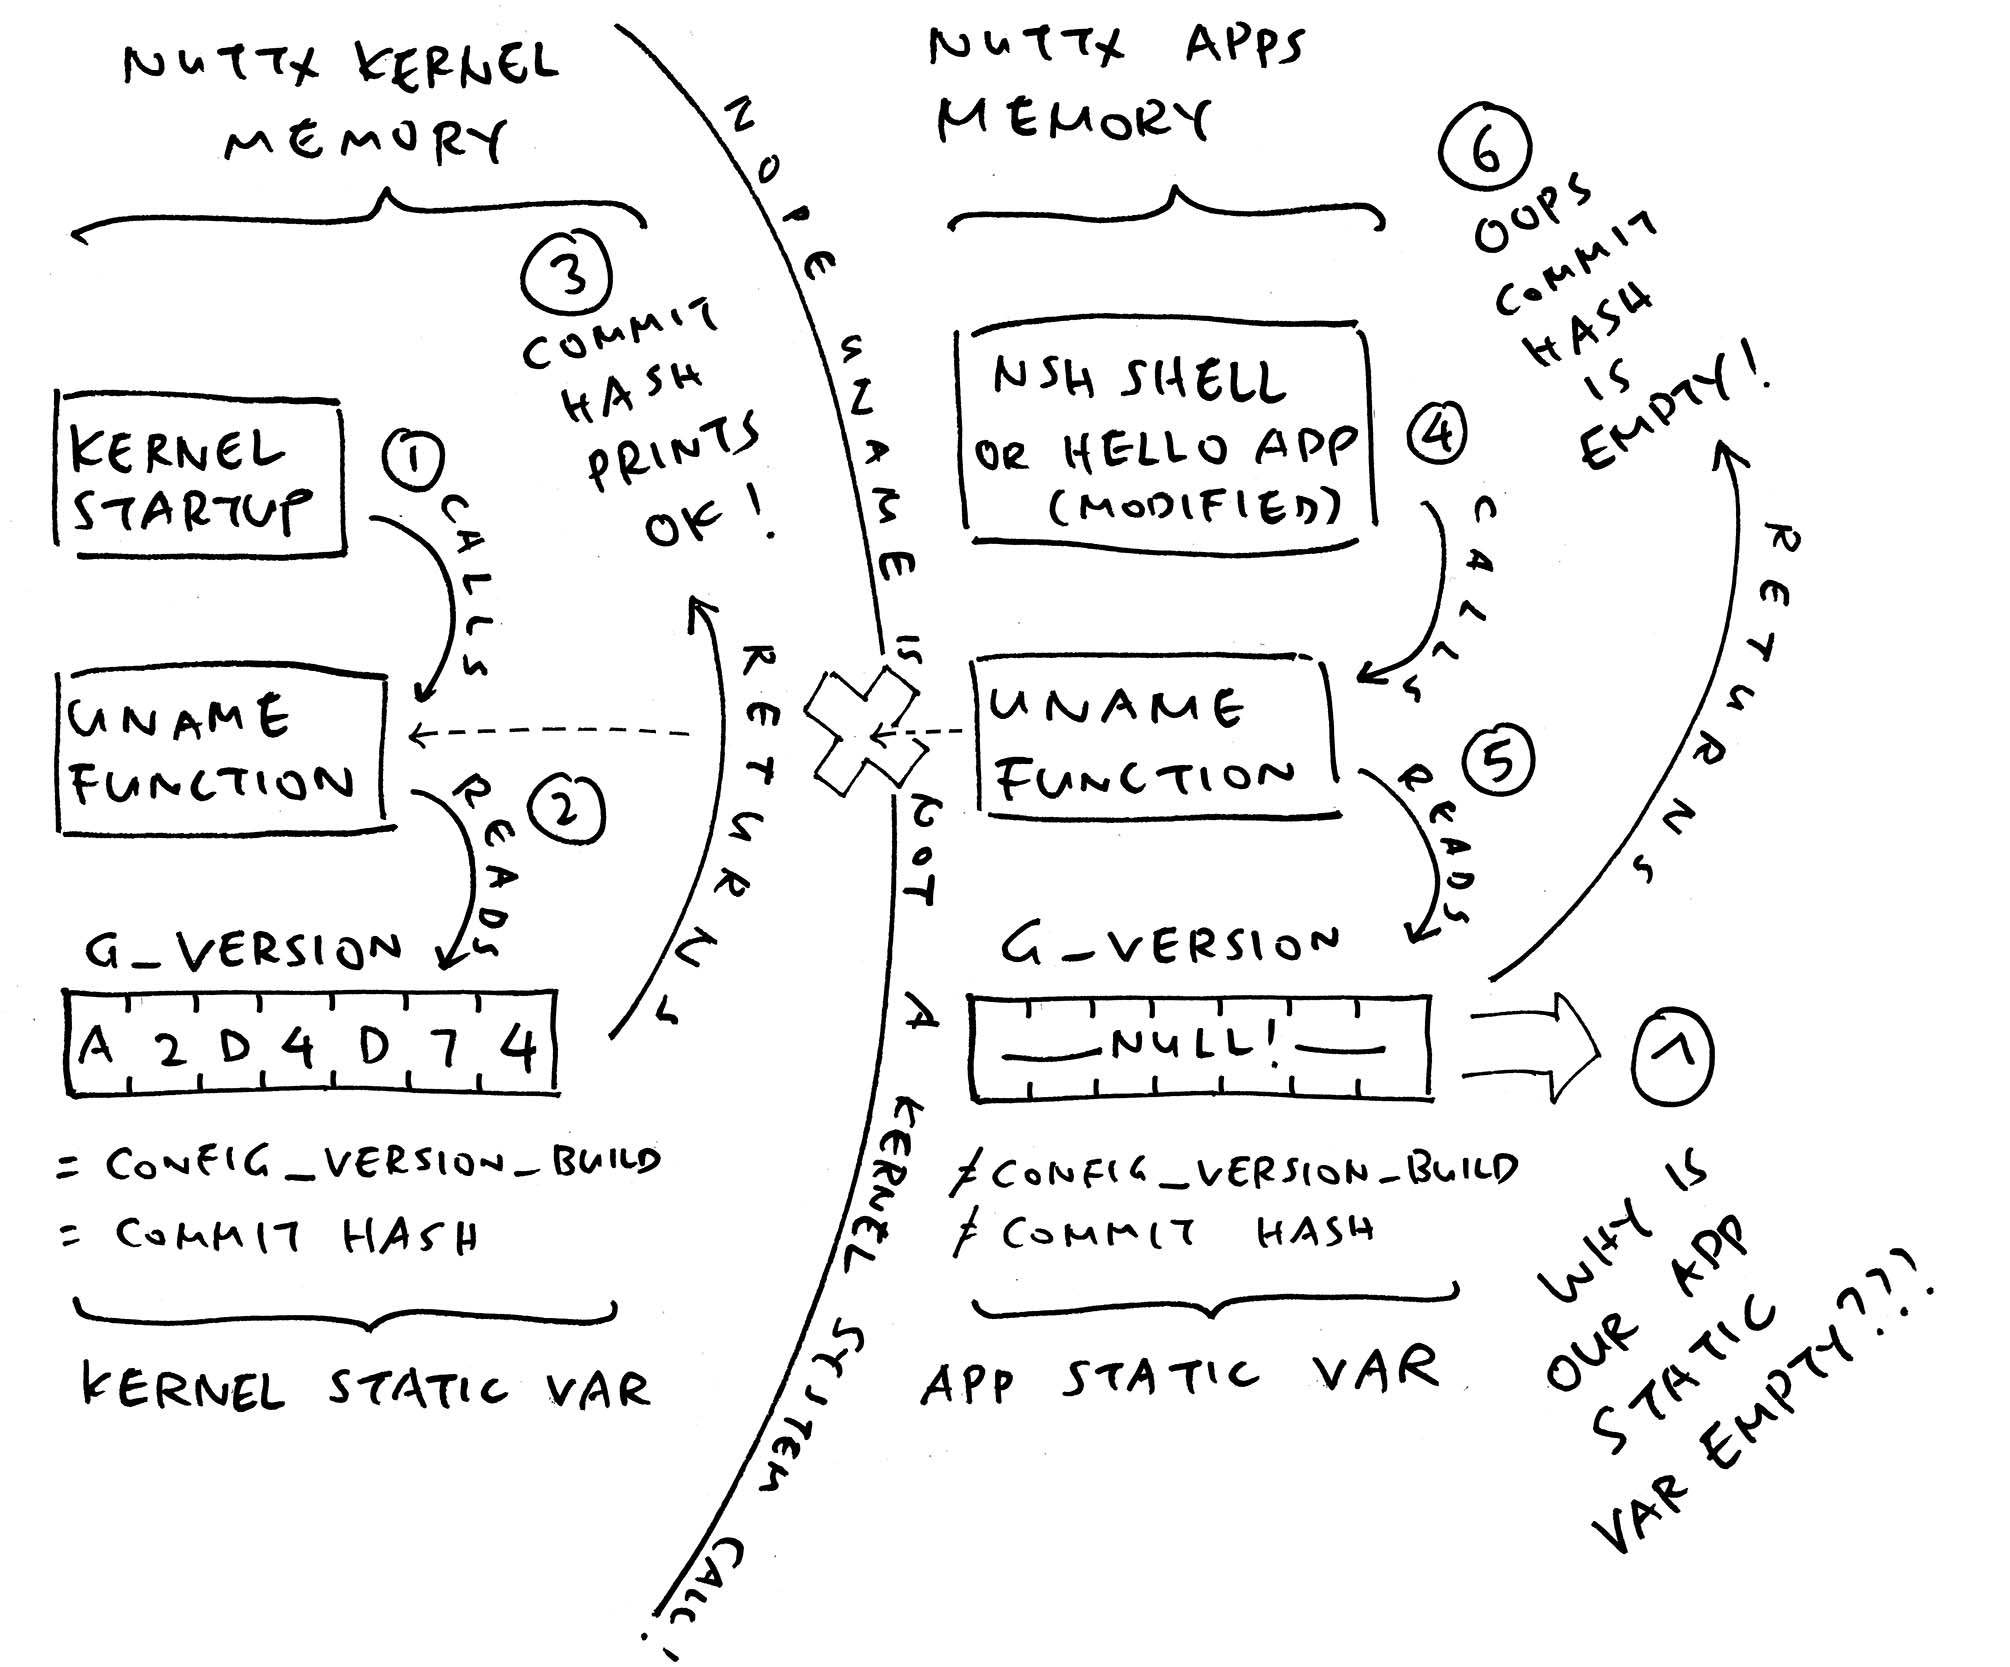 NUTTX KERNEL
MEMORY
3
COMMIT
HASH
PRINTS
OK!
KERNEL
STARTUP
1
CALLS
UNAME
FUNCTION
2
READS
RETURNS
G_VERSION
A 2 D 4 D 7 4
= CONFIG_VERSION_BUILD
= COMMIT HASH
KERNEL STATIC VAR
NOPE UNAME IS NOT A KERNEL SYSTEM CALL!
NUTTX APPS
MEMORY
NSH SHELL
OR HELLO APP
(MODIFIED)
4
CALLS
UNAME
FUNCTION
5
READS
RETURNS
6
OOPS
COMMIT
HASH
IS
EMPTY!
G_VERSION
NULL!
≠ CONFIG_VERSION_BUILD
≠ COMMIT HASH
APP STATIC VAR
7
WHY IS
OUR APP
STATIC
VAR EMPTY???